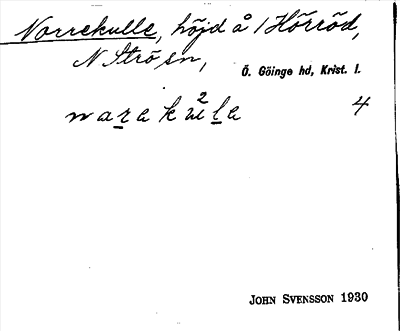 Norrekulle, höjd å 1 Hörröd,
N Strö sn,
Ö. Göinge hd, Krist. l.
4
JOHN SVENSSON 1930